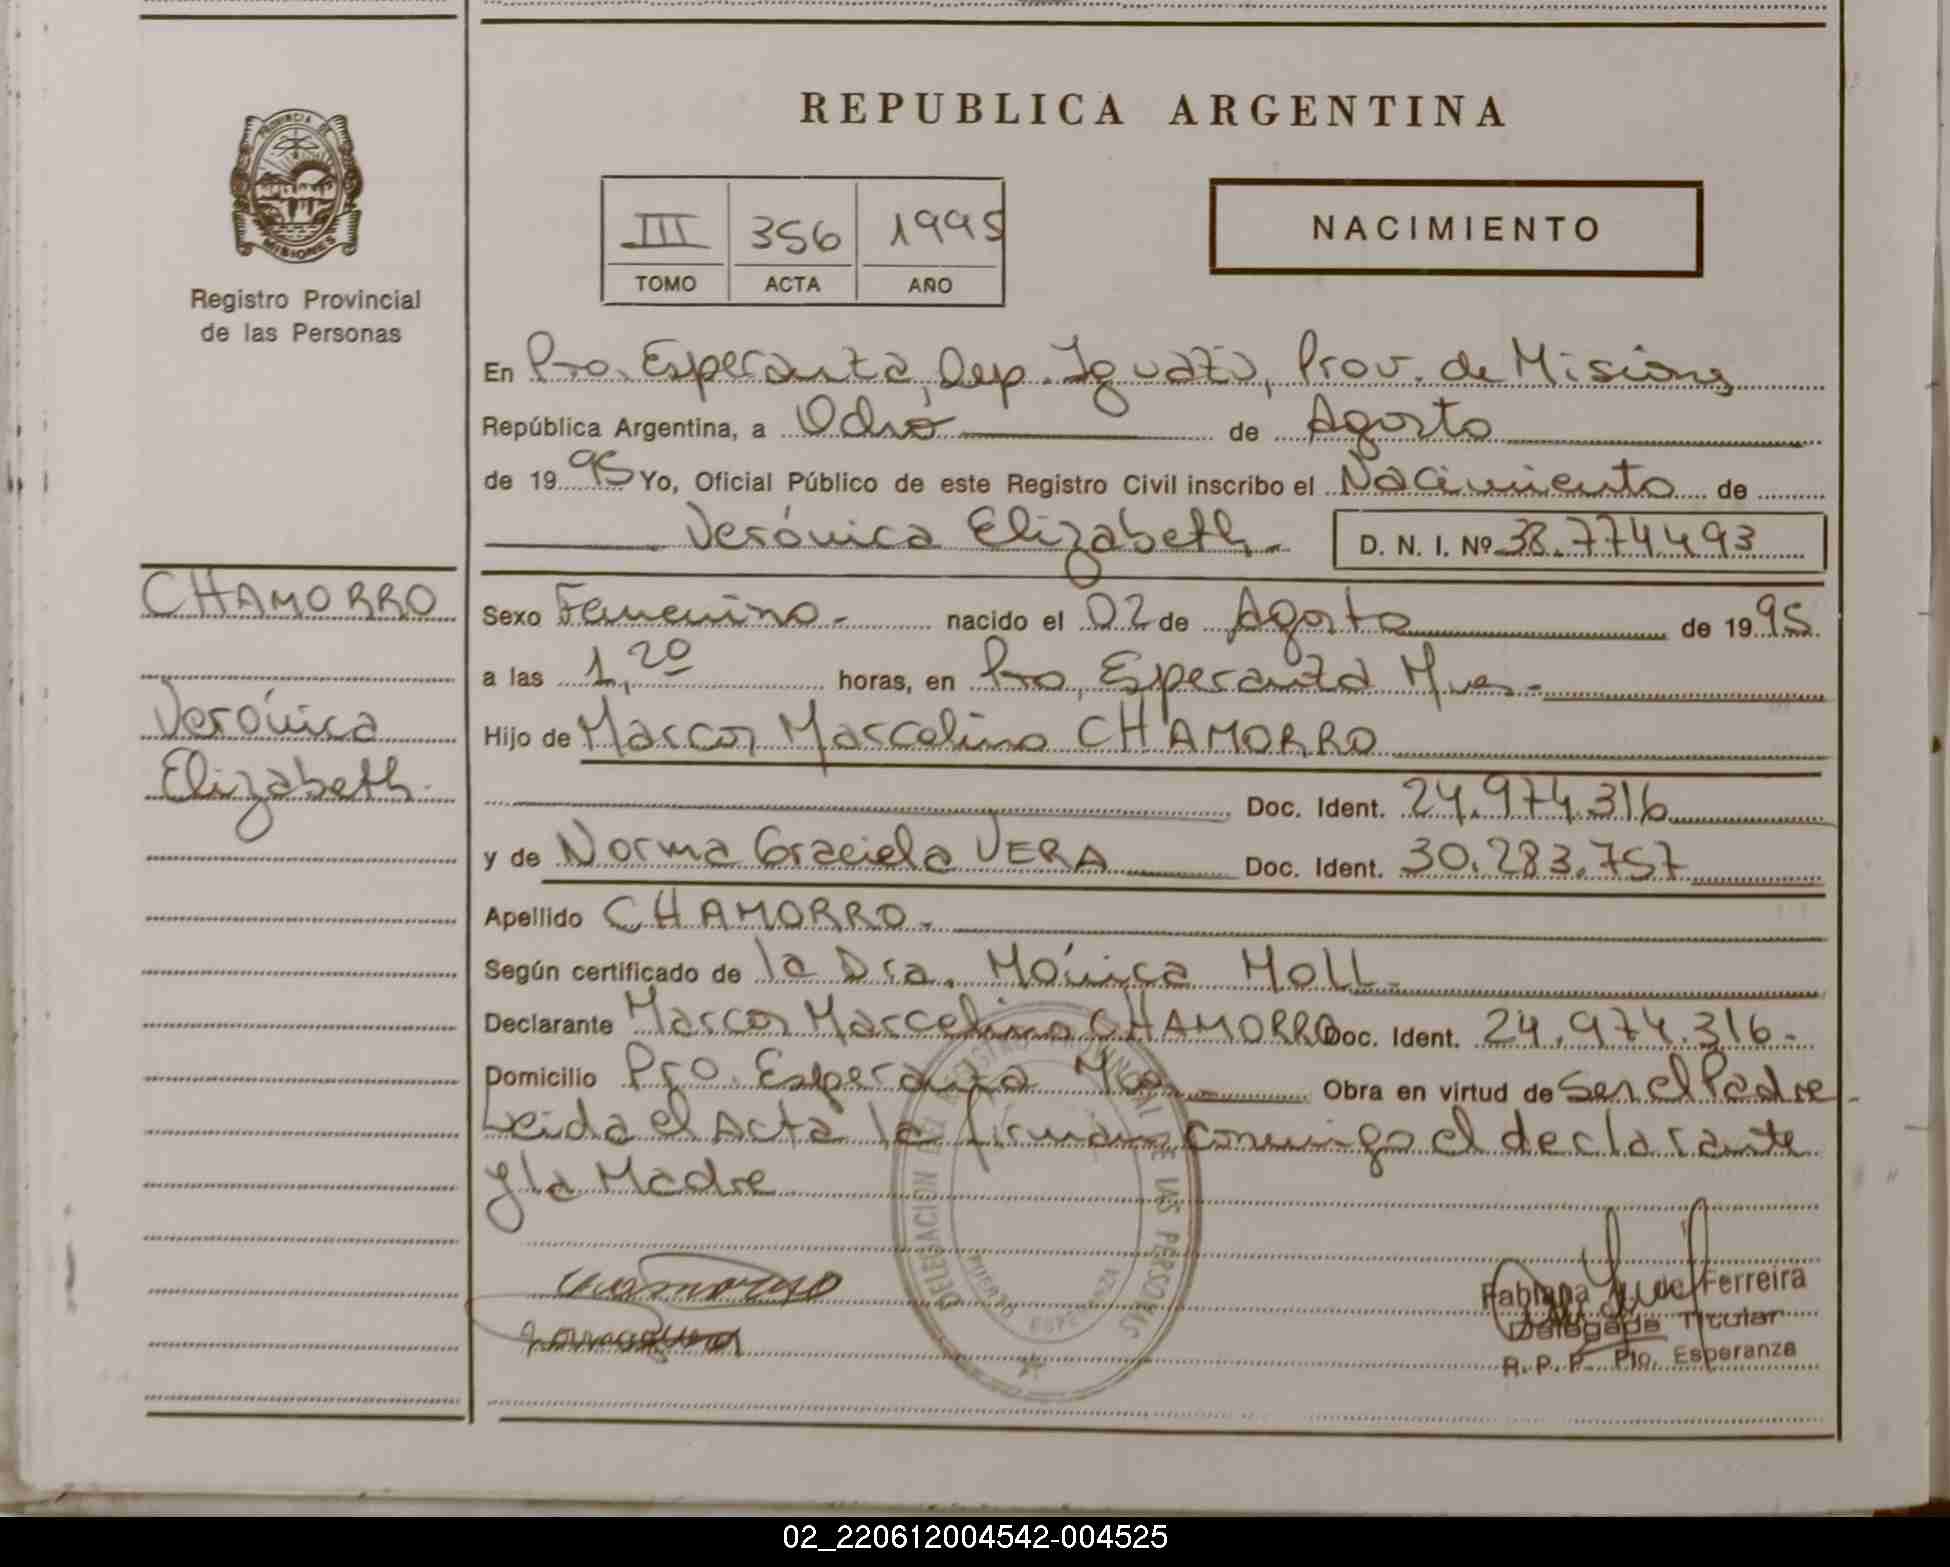 REPUBLICA ARGENTINA
PROVINCIA DE
MISIONES
Registro Provincial
de las Personas
III 356 1995
TOMO ACTA AÑO
NACIMIENTO
En Pto. Esperanza, Dep. Iguazú, Prov. de Misiones
República Argentina, a Ocho de Agosto
de 1995 Yo, Oficial Público de este Registro Civil inscribo el Nacimiento de
Verónica Elizabeth.- D. N. I. Nº 38.774.493
CHAMORRO
Verónica
Elizabeth.
Sexo Femenino.- nacido el 02 de Agosto de 1995.
a las 1,20 horas, en Pto. Esperanza Mnes.-
Hijo de Marcos Marcelino CHAMORRO
Doc. Ident. 24.974.316
y de Norma Graciela VERA Doc. Ident. 30.283.757
Apellido CHAMORRO.-
Según certificado de la Dra. Mónica Moll.-
Declarante Marcos Marcelino CHAMORRO Doc. Ident. 24.974.316.-
Domicilio Pto. Esperanza Mnes. Obra en virtud de Ser el Padre.-
Leida el Acta la firman conmigo el declarante
y la Madre
DELEGACION DEL REGISTRO PROVINCIAL DE LAS PERSONAS
PUERTO ESPERANZA
Fabiana Ferreira
Delegada Titular
R.P.P. Pto. Esperanza
02_220612004542-004525